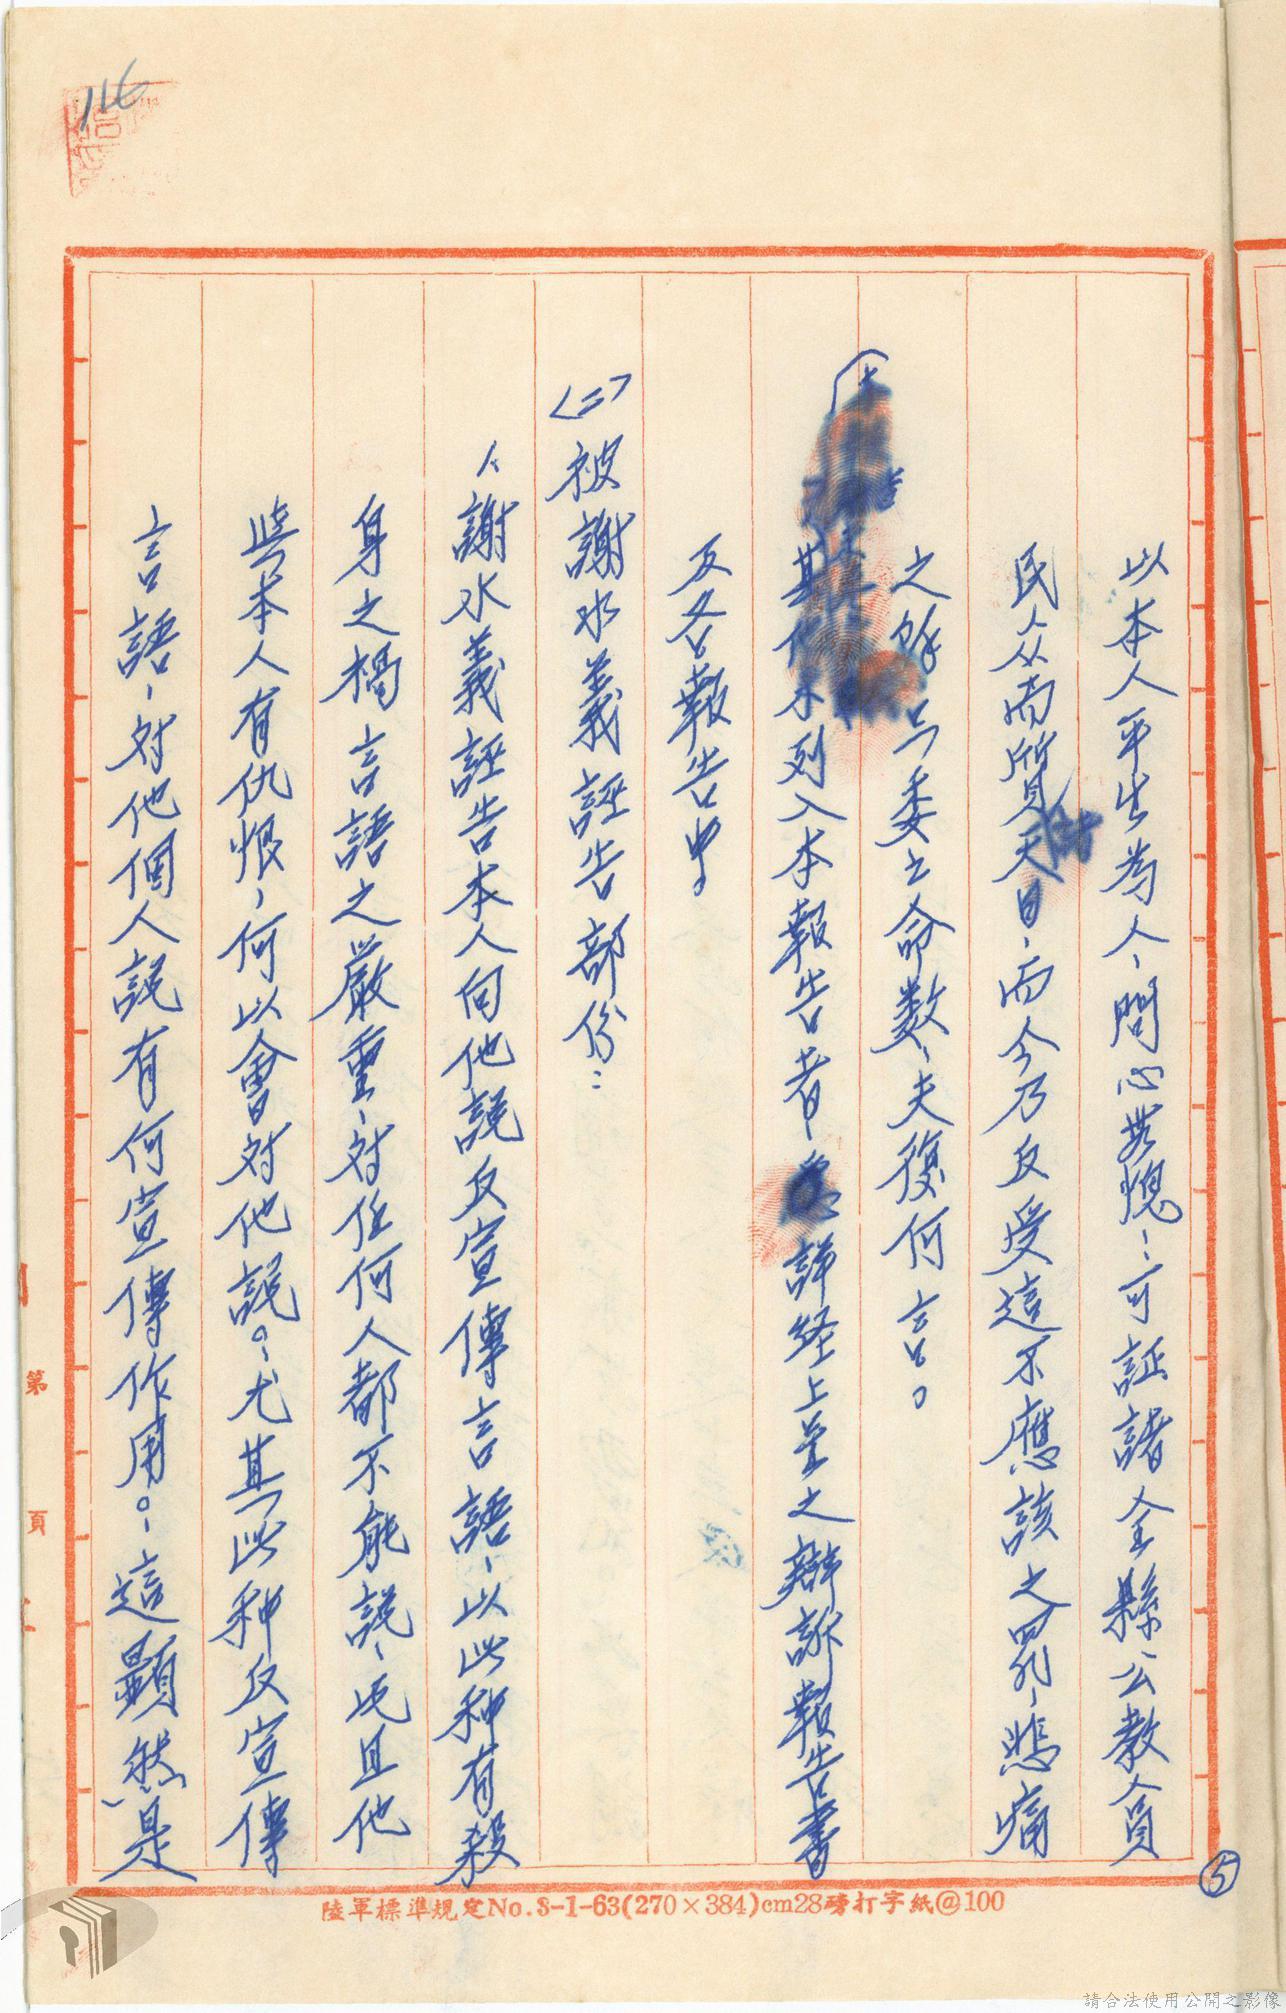 116
以本人平生為人、問心無愧：可証諸全縣公教人員
民人从而質天日、而今乃反受這不應該之罪、悲痛
之餘只委之命数、夫復何言。
其他未列入本報告者、詳経上呈之辯訴報告書
及各報告中。
〈二〉被謝水義誣告部份：
人謝水義誣告本人向他説反宣傳言語、以此种有殺
身之禍言語之嚴重、対任何人都不能説、況且他
與本人有仇恨，何以會対他説。、尤其此种反宣傳
言語、対他個人説有何宣傳作用。、這顯然是
5
第 頁
陸軍標準規定No.S-1-63(270×384)cm28磅打字紙@100
請合法使用公開之影像